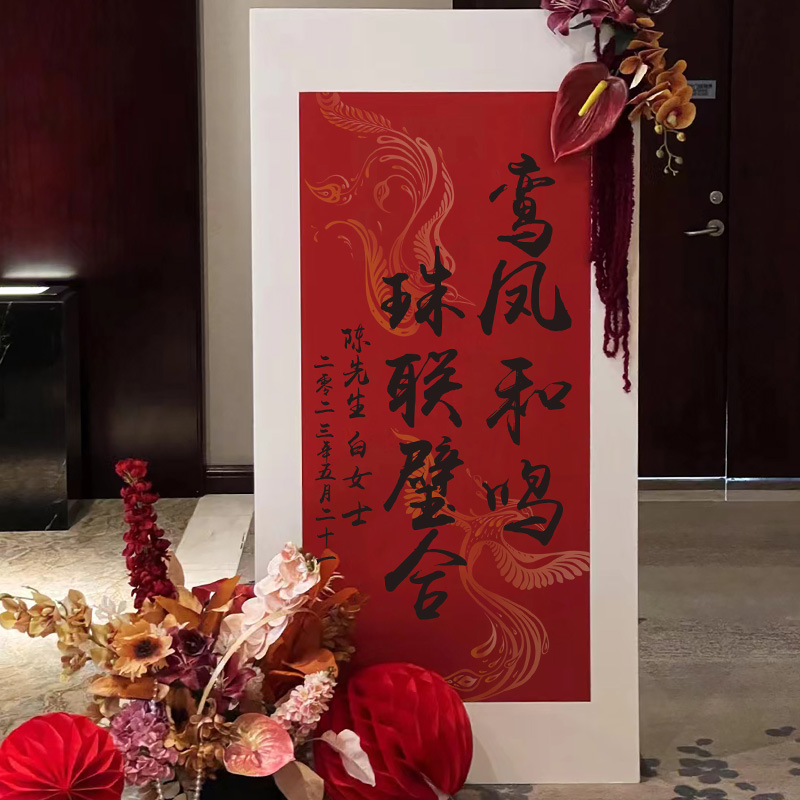 鸾凤和鸣
珠联璧合
陈先生白女士
二零二三年五月二十一